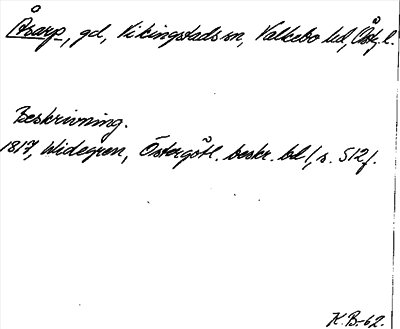 Åsarp, gd, Vikingstads sn, Valkebo hd, Östg. l.
Beskrivning.
1817, Widegren, Östergötl. beskr. bd 1, s. 512 f.
K.B-62.